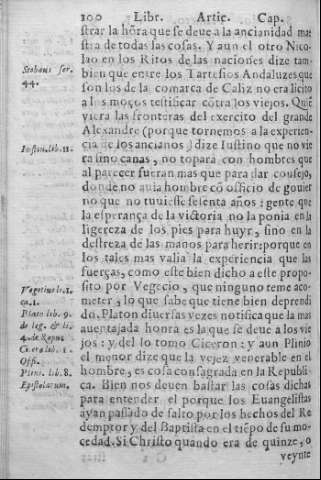 100 Libr. Artic. Cap.
strar la hõra que se deue a la ancianidad mae
stra de todas las cosas. Y aun el otro Nico-
lao en los Ritos de las naciones dize tam-
Stobæus ser.
44.
bien que entre los Tartesios Andaluzes que
son los de la comarca de Caliz no era licito
a los moços testificar cõtra los viejos. Quiẽ
viera las fronteras del exercito del grande
Alexandre (porque tornemos a la experien-
Iustin. lib. 11.
cia de los ancianos) dize Iustino que no vie
ra sino canas, no topara con hombres que
al parecer fueran mas que para dar consejo,
donde no auia hombre cõ officio de gouier
no que no tuuiesse sesenta años: gente que
la esperança de la victoria no la ponia en la
ligereza de los pies para huyr, sino en la
destreza de las manos para herir: porque en
los tales mas valia la experiencia que las
fuerças, como este bien dicho a este propo-
Vegetius li. 1.
ca. 1.
sito por Vegecio, que ninguno teme aco-
meter, lo que sabe que tiene bien deprendi
Plato lib. 9.
de leg. & li.
4. de Repu.
do. Platon diuersas vezes notifica que la mas
auentajada honra es la que se deue a los vie
jos: y del lo tomo Ciceron: y aun Plinio
Cicero lib. 1.
Offi.
el menor dize que la vejez venerable en el
Plini. lib. 8.
Epistolarum.
hombre, es cosa consagrada en la Republi
ca. Bien nos deuen bastar las cosas dichas
para entender el porque los Euangelistas
ayan passado de salto por los hechos del Re
demptor y del Baptista en el tiẽpo de su mo
cedad. Si Christo quando era de quinze, o
veynte